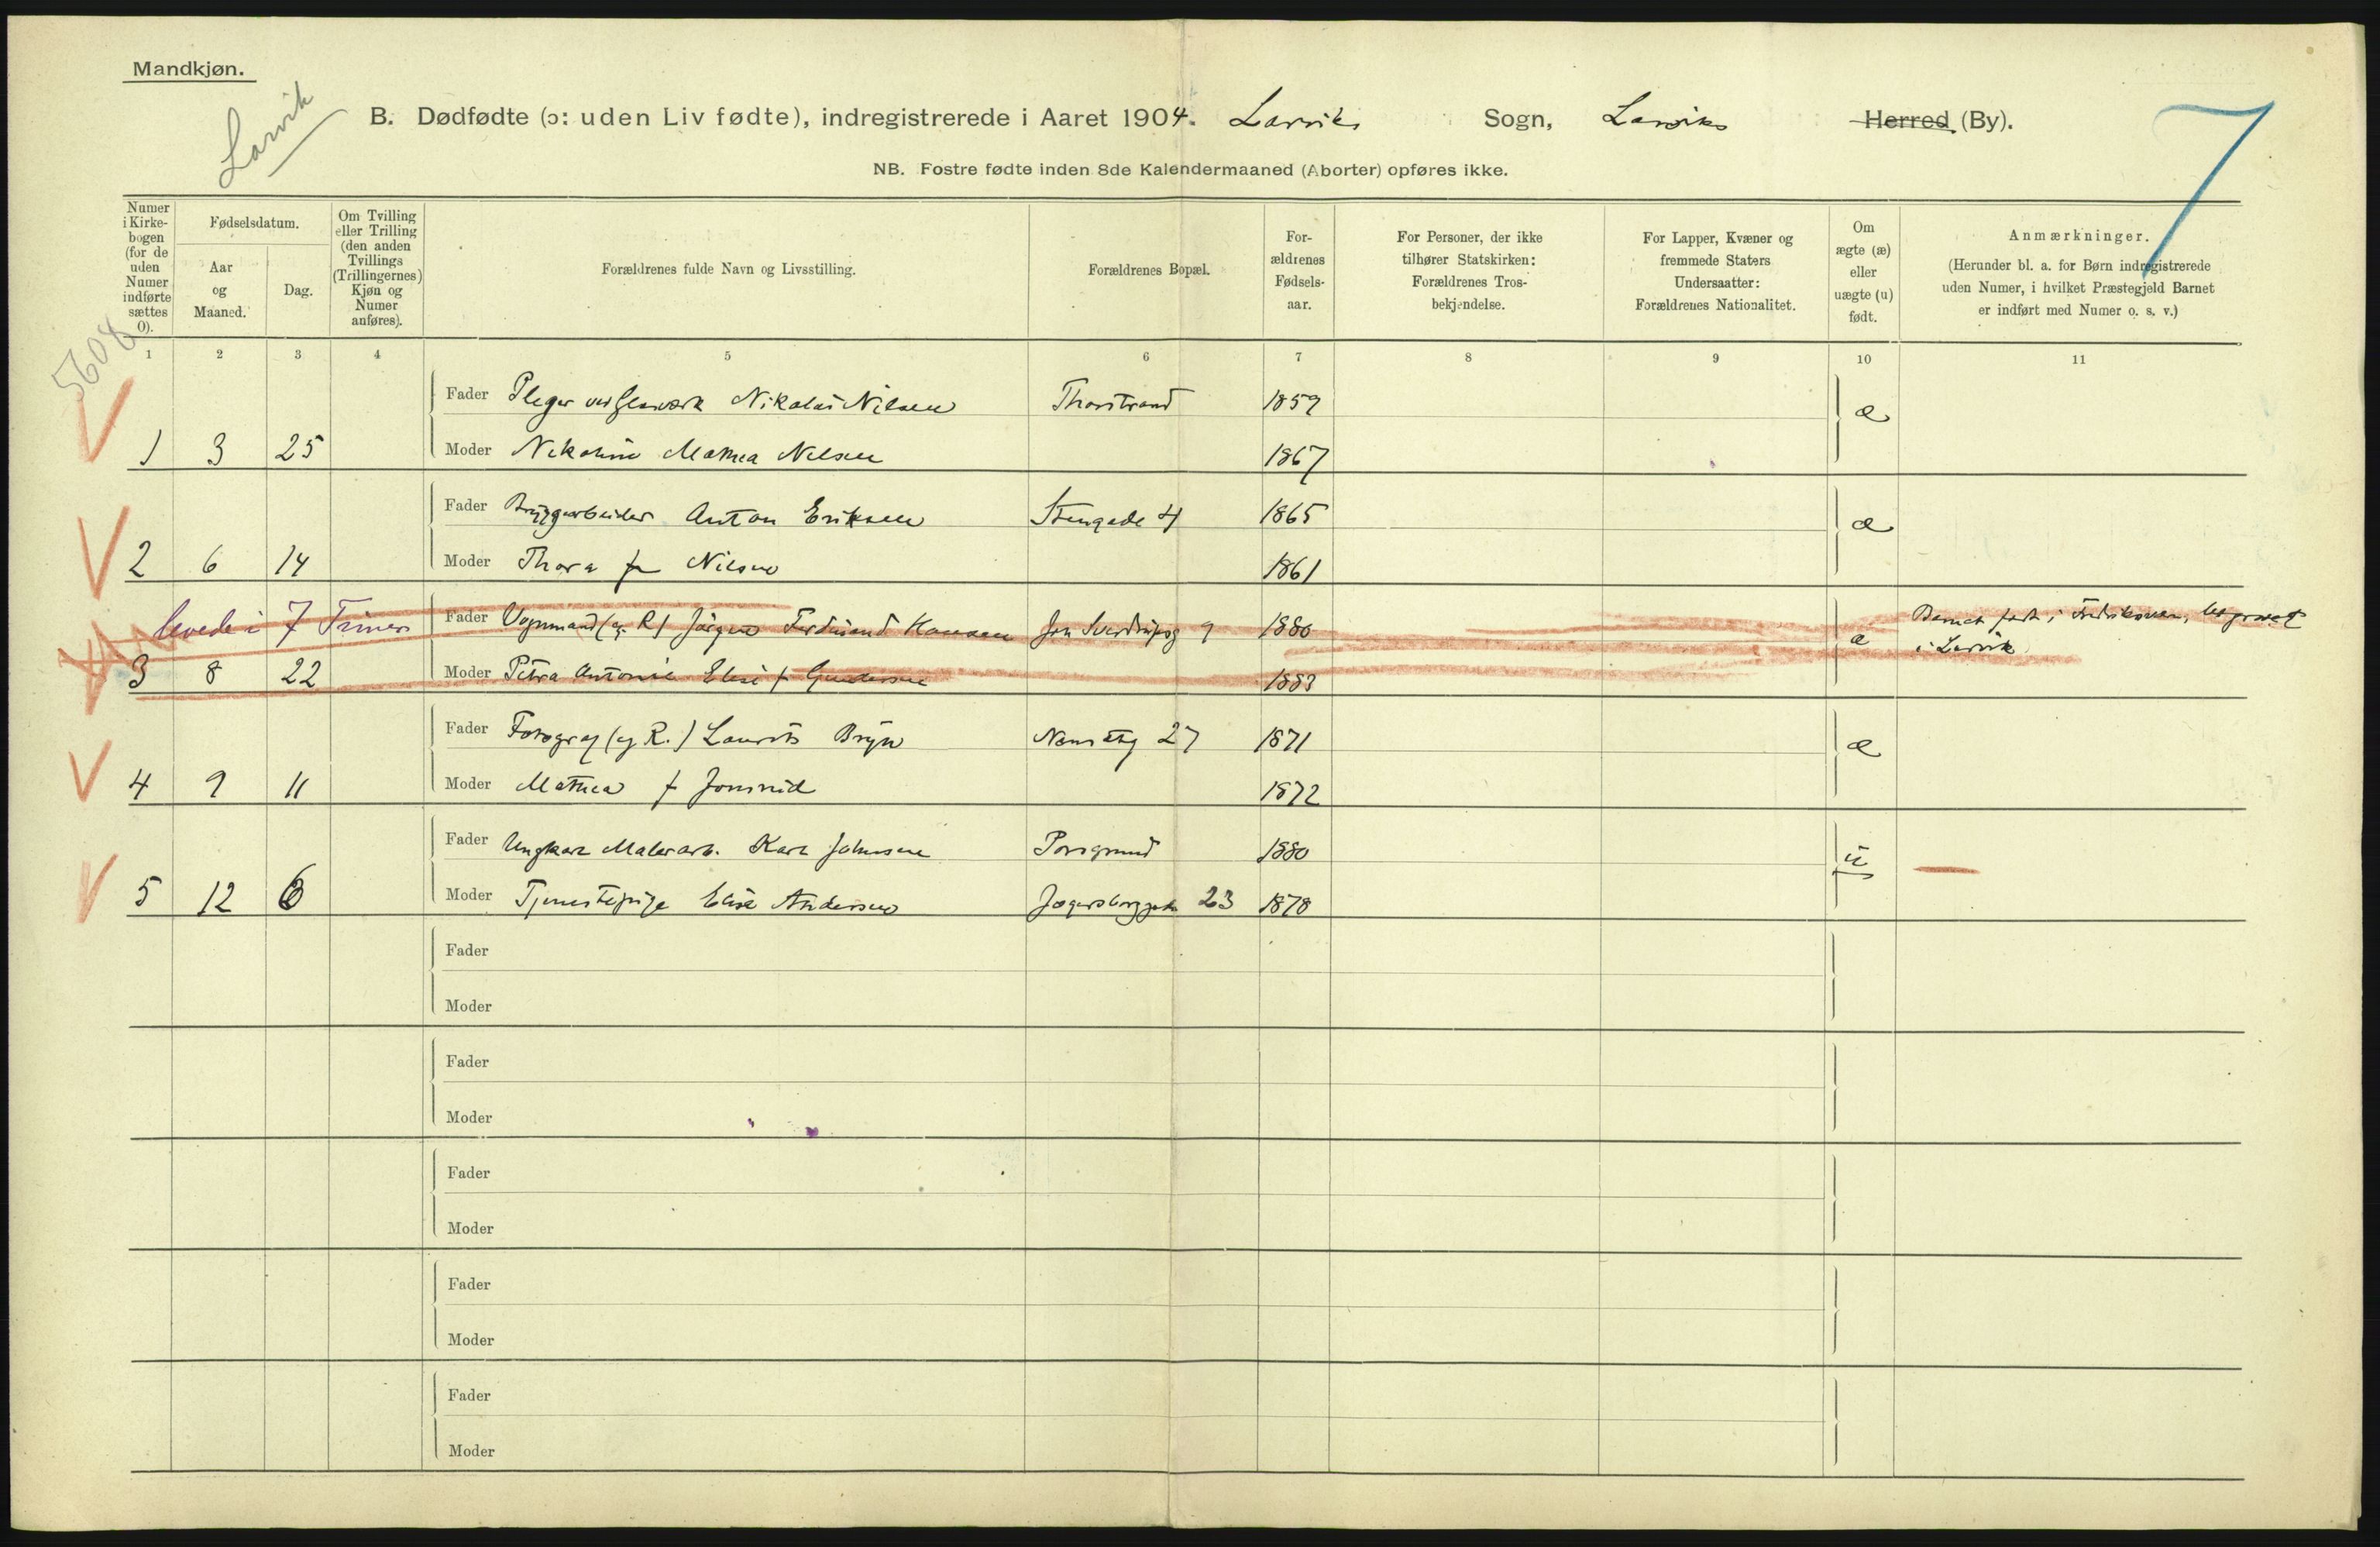 Mandkjøn.
Larvik
B. Dødfødte (ɔ: uden Liv fødte), indregistrerede i Aaret 1904. Larviks Sogn, Larviks Herred (By).
7
NB. Fostre fødte inden 8de Kalendermaaned (Aborter) opføres ikke.
Numer i Kirkebogen (for de uden Numer indførte sættes 0).
Fødselsdatum.
Aar og Maaned.
Dag.
Om Tvilling eller Trilling (den anden Tvillings (Trillingernes) Kjøn og Numer anføres).
Forældrenes fulde Navn og Livsstilling.
Forældrenes Bopæl.
For-ældrenes Fødsels-aar.
For Personer, der ikke tilhører Statskirken: Forældrenes Tros-bekjendelse.
For Lapper, Kvæner og fremmede Staters Undersaatter: Forældrenes Nationalitet.
Om ægte (æ) eller uægte (u) født.
Anmærkninger.
(Herunder bl. a. for Børn indregistrerede uden Numer, i hvilket Præstegjeld Barnet er indført med Numer o. s. v.)
5608
1 2 3 4 5 6 7 8 9 10 11
Fader Pleger ved Glasværk Nikolai Nilsen Thorstrand 1859 æ
1 3 25 Moder Nikoline Mathea Nilsen 1867
Fader Bryggearbeider Anton Eriksen Stengade 4 1865 æ
2 6 14 Moder Thora f Nilsen 1861
levede i 7 Timer Fader Vognmand (eg. R) Jörgen Ferdinand Hansen Jon Sverdrupsg 9 1880 æ Barnet født i Fredriksværn, begravet
3 8 22 Moder Petra Antonie Elise f Gundersen 1883 i Larvik
Fader Fotograf (eg R.) Laurits Bryn Nansetg 27 1871 æ
4 9 11 Moder Mathea f 1872
Fader Ungkarl Malerarb. Karl Johnsen Porsgrund 1880 ü
5 12 6 Moder Tjenestepige Elise Andersen Jegersborggade 23 1878
Fader
Moder
Fader
Moder
Fader
Moder
Fader
Moder
Fader
Moder